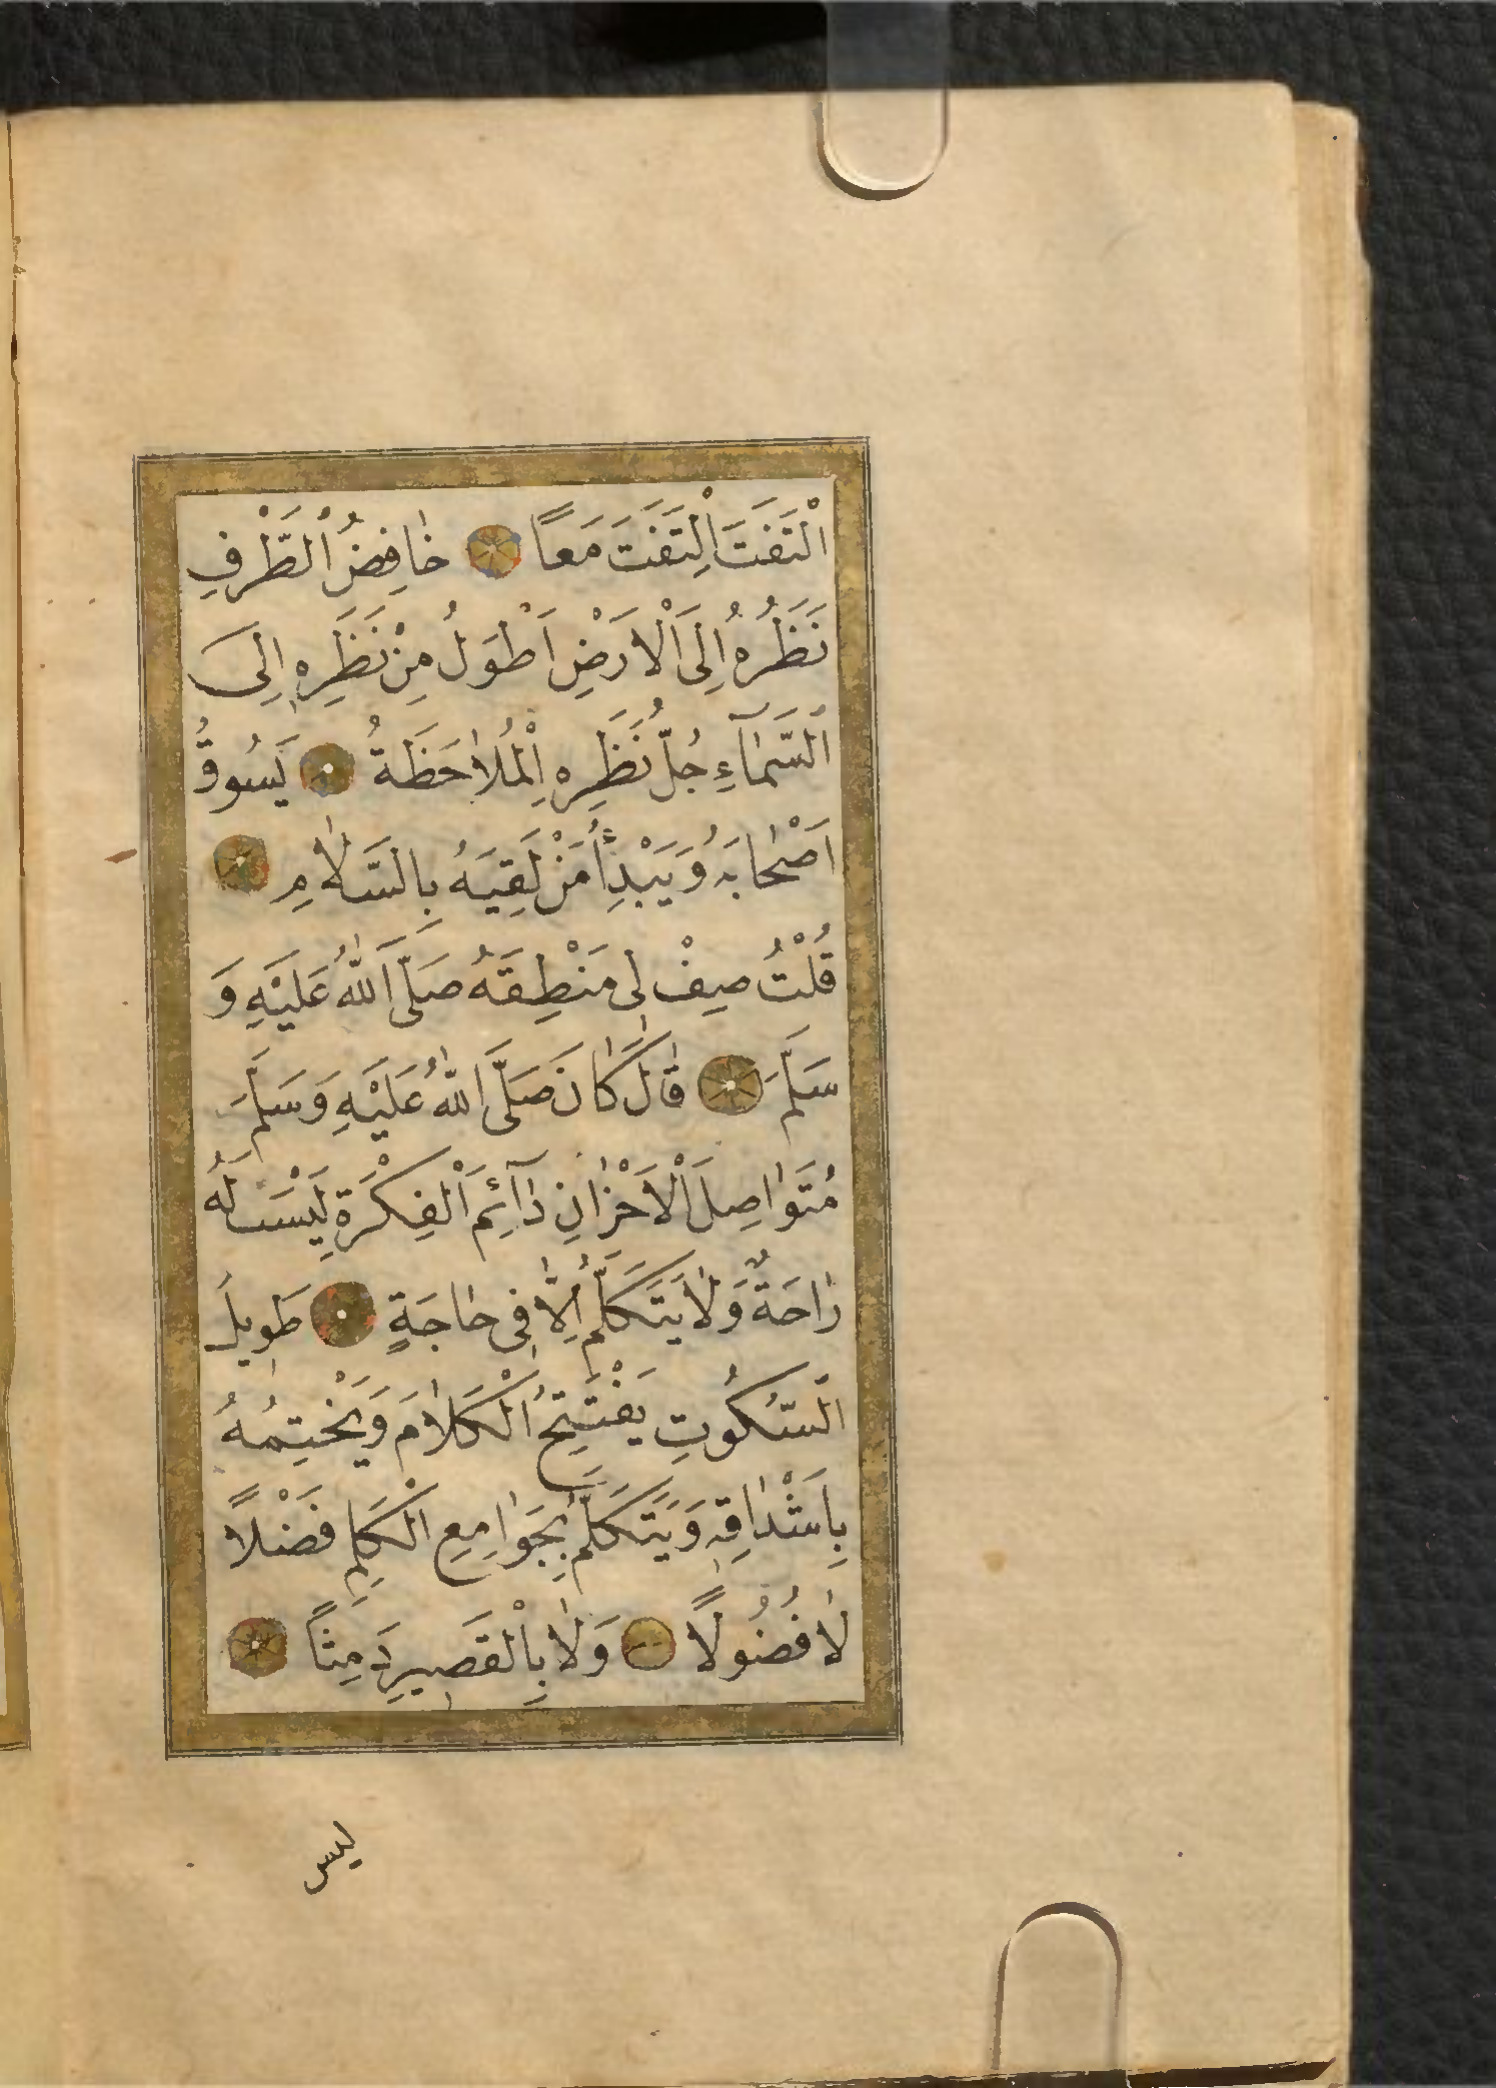 الْتَفَتَ اِلْتَفَتَ مَعًا خٰافِضُ الْطَّرْفِ
نَظَرُهُ اِلَى الْاَرْضِ اَطْوَلُ مِنْ نَظَرِهِ اِلَى
الَسَّمٰآءِ جُلُّ نَظَرِهِ اِلْمُلٰاحَظَةُ يَسُوقُ
اَصْحٰابَهُ وَيَبْدِأُ مَنْ لَقِيَهُ بِالسَّلٰامِ
قُلْتُ صِفْ لِى مَنْطِقَهُ صَلَّى اَللّٰهُ عَلَيْهِ وَ
سَلَّمَ قٰالَ كٰانَ صَلَّى اللّٰهُ عَلَيْهِ وَسَلَّمَ
مُتَوٰاصِلَ الْاَحْزٰانِ دٰآئِمَ الْفِكْرَةِ لَيْسَتْ لَهُ
رٰاحَةٌ وَلٰا يَتَكَلَّمُ اِلّٰا فِى حٰاجَةٍ طَوِيلَ
الَسُّكُوتِ يَفْتَتِحُ الْكَلٰامَ وَيَخْتِمُهُ
بِاَشْدٰاقِهِ وَيَتَكَلَّمُ بِجَوٰامِعِ الْكَلِمِ فَضْلًا
لٰا فُضُولًا وَلٰا بِالْقَصِيرِ دَمِثًا
ليس